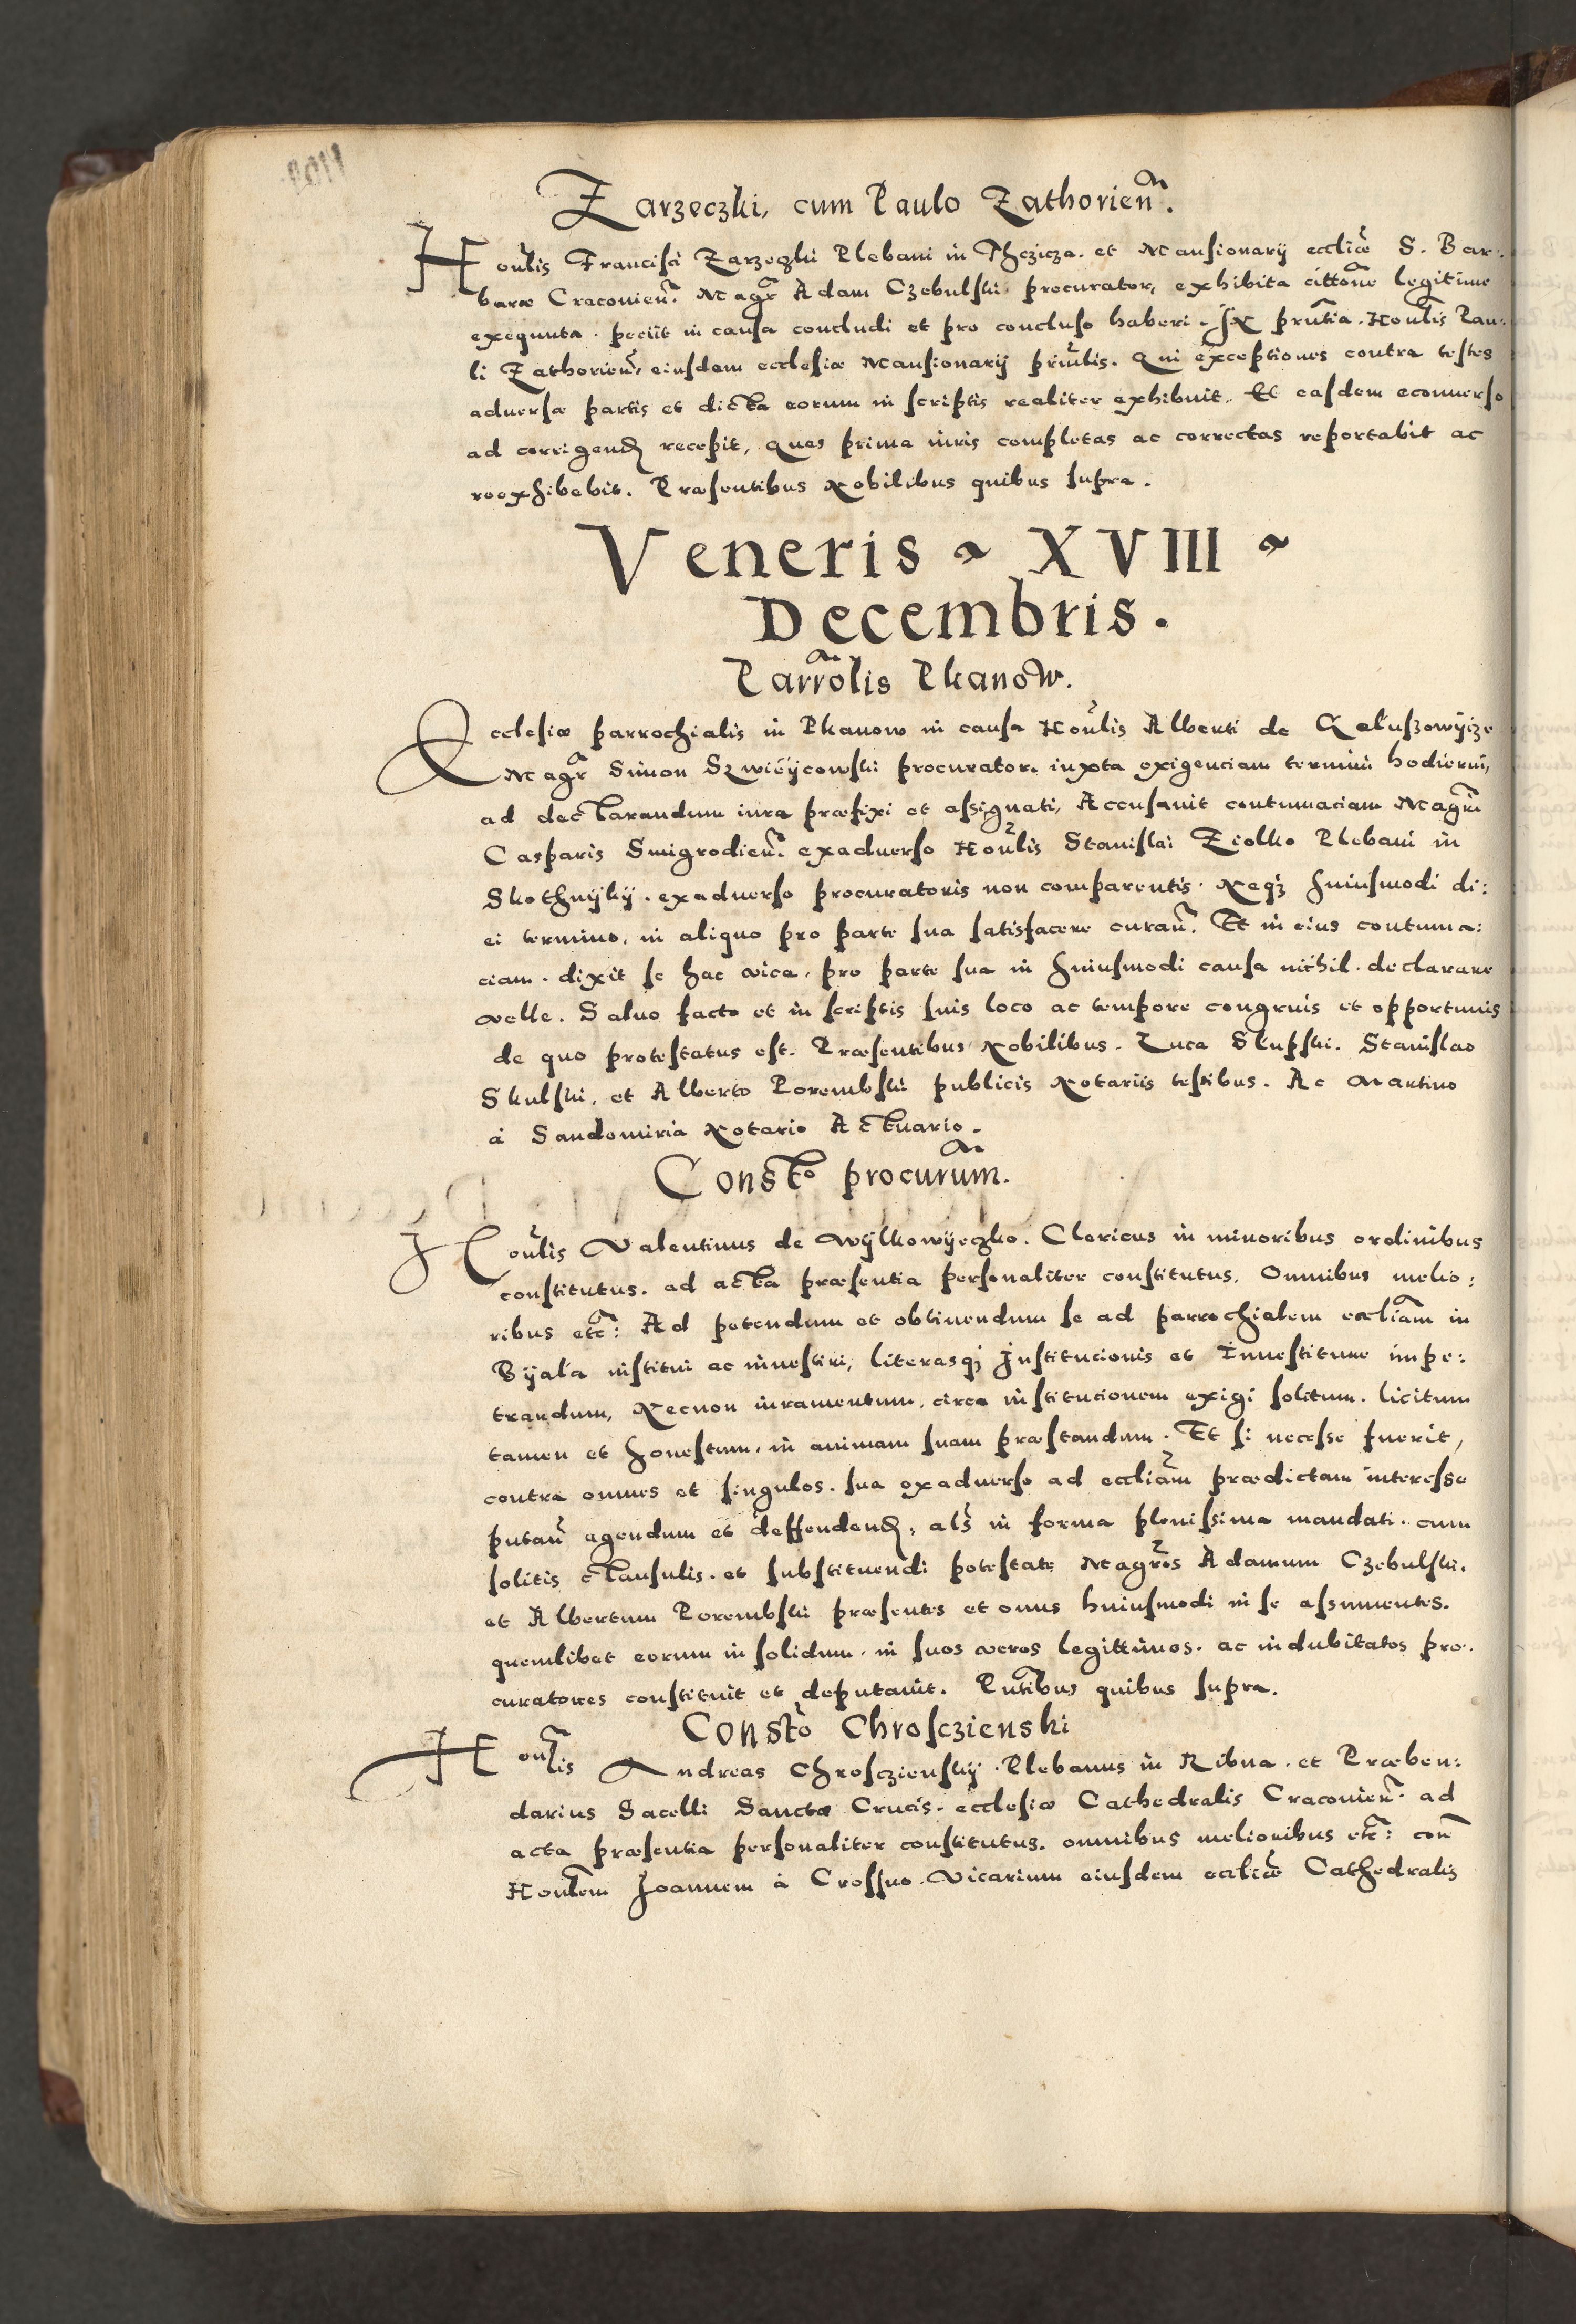 Zarzeczki, cum Paulo Zathorieñ.
Hoñlis Francisci Zarzeczki Plebani in Thczicza. et Mansionarij eccliæ S. Bar:
baræ Cracovieñ. Magr̃ Adam Czebulski procurator, exhibita citt̃one legitime
exequuta. peciit in causa concludi et pro concluso haberi. In prñtia. Hoñlis Pau:
li Zathorieñ, eiusdem ecclesiæ Mansionarij prñlis. Qui exceptiones contra testes
aduersæ partis et dicta eorum in scriptis realiter exhibuit. Et easdem econuerso
ad corrigend̃ recepit, quas prima iuris completas ac correctas reportabit ac
reexhibebit. Præsentibus Nobilibus quibus supra.
Veneris XVIII
Decembris.
Parrõlis Pkanow.
Ecclesiæ parrochialis in Pkanow in causa Hoñlis Alberti de Galuszowijcze
Magr̃ Simon procurator. iuxta exigenciam termini hodierni,
ad declarandum iura præfixi et assignati, Accusauit contumaciam Magr̃i
Casparis Smigrodieñ. exaduerso Hoñlis Stanislai Ziolko Plebani in
Skothnijkij. exaduerso procuratoris non comparentis. Neqz huiusmodi di:
ei termino, in aliquo pro parte sua satisfacere curañ. Et in eius contuma:
ciam. dixit se hac vice, pro parte sua in huiusmodi causa nichil. declarare
velle. Saluo facto et in scriptis suis loco ac tempore congruis et opportunis
de quo protestatus est. Præsentibus Nobilibus. Luca Slupski. Stanislao
Skulski, et Alberto Porembski publicis Notariis testibus. Ac Martino
à Sandomiria Notario Actuario.
Constõ procurũm.
Hoñlis Valentinus de Wijlkowijeczko. Clericus in minoribus ordinibus
constitutus. ad acta præsentia personaliter constitutus. Omnibus melio:
ribus etc̃: Ad petendum et obtinendum se ad parrochialem eccliãm in
Bijala institui ac inuestiri, literasqz Institucionis et Inuestituræ impe:
trandum, Necnon iuramentum, circa institucionem exigi solitum. licitum
tamen et honestum, in animam suam præstandum. Et si necesse fuerit,
contra omnes et singulos. sua exaduerso ad eccliãm prædictam interesse
putañ agendum et deffendend̃, als̃ in forma plenissima mandati. cum
solitis clausulis. et substituendi potestate Magr̃os Adamum Czebulski.
et Albertum Porembski præsentes et onus huiusmodi in se assumentes.
quemlibet eorum in solidum. in suos veros legittimos. ac indubitatos pro.
curatores constituit et deputauit. Pñtibus quibus supra.
Constõ Chrosczienski
Hoñlis Andreas Chrosczienskij. Plebanus in Ribna. et Præben:
darius Sacelli Sanctæ Crucis. ecclesiæ Cathedralis Cracovieñ. ad
acta præsentia personaliter constitutus. omnibus melioribus etc̃: coñ
Hoñlem Joannem à Crossno. Vicarium eiusdem eccliæ Cathedralis